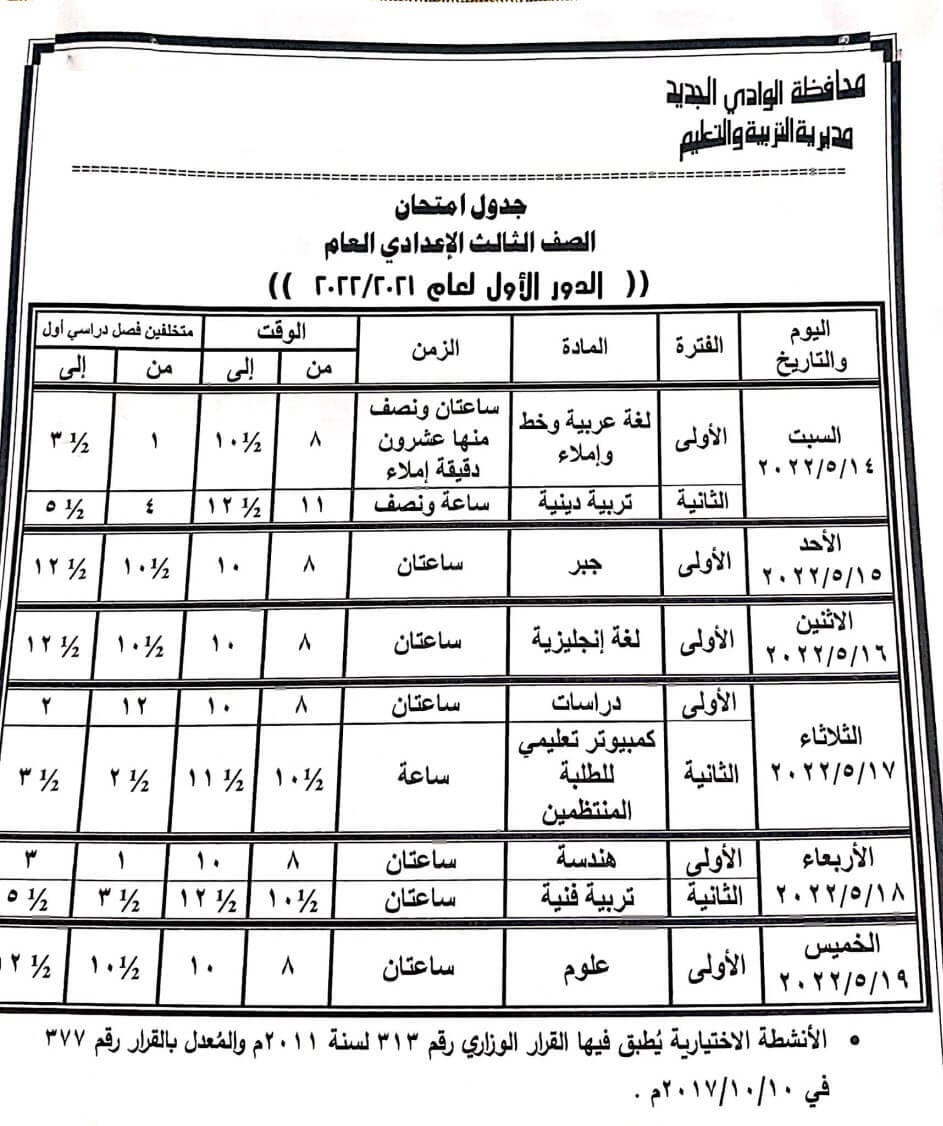 محافظة الوادي الجديد
مديرية التربية والتعليم
جدول امتحان
الصف الثالث الإعدادي العام
(( الدور الأول لعام ٢٠٢٢/٢٠٢١ ))
اليوم والتاريخ الفترة المادة الزمن الوقت متخلفين فصل دراسي أول
من إلى من إلى
السبت ٢٠٢٢/٥/١٤ الأولى لغة عربية وخط وإملاء ساعتان ونصف منها عشرون دقيقة إملاء ٨ ١٠½ ١ ٣ ½
الثانية تربية دينية ساعة ونصف ١١ ١٢ ½ ٤ ٥ ½
الأحد ٢٠٢٢/٥/١٥ الأولى جبر ساعتان ٨ ١٠ ١٠½ ١٢ ½
الاثنين ٢٠٢٢/٥/١٦ الأولى لغة إنجليزية ساعتان ٨ ١٠ ١٠½ ١٢ ½
الثلاثاء ٢٠٢٢/٥/١٧ الأولى دراسات ساعتان ٨ ١٠ ١٢ ٢
الثانية كمبيوتر تعليمي للطلبة المنتظمين ساعة ١٠½ ١١ ½ ٢ ½ ٣ ½
الأربعاء ٢٠٢٢/٥/١٨ الأولى هندسة ساعتان ٨ ١٠ ١ ٣
الثانية تربية فنية ساعتان ١٠½ ١٢ ½ ٣ ½ ٥ ½
الخميس ٢٠٢٢/٥/١٩ الأولى علوم ساعتان ٨ ١٠ ١٠½ ١٢ ½
• الأنشطة الاختيارية يُطبق فيها القرار الوزاري رقم ٣١٣ لسنة ٢٠١١م والمُعدل بالقرار رقم ٣٧٧
في ٢٠١٧/١٠/١٠م .